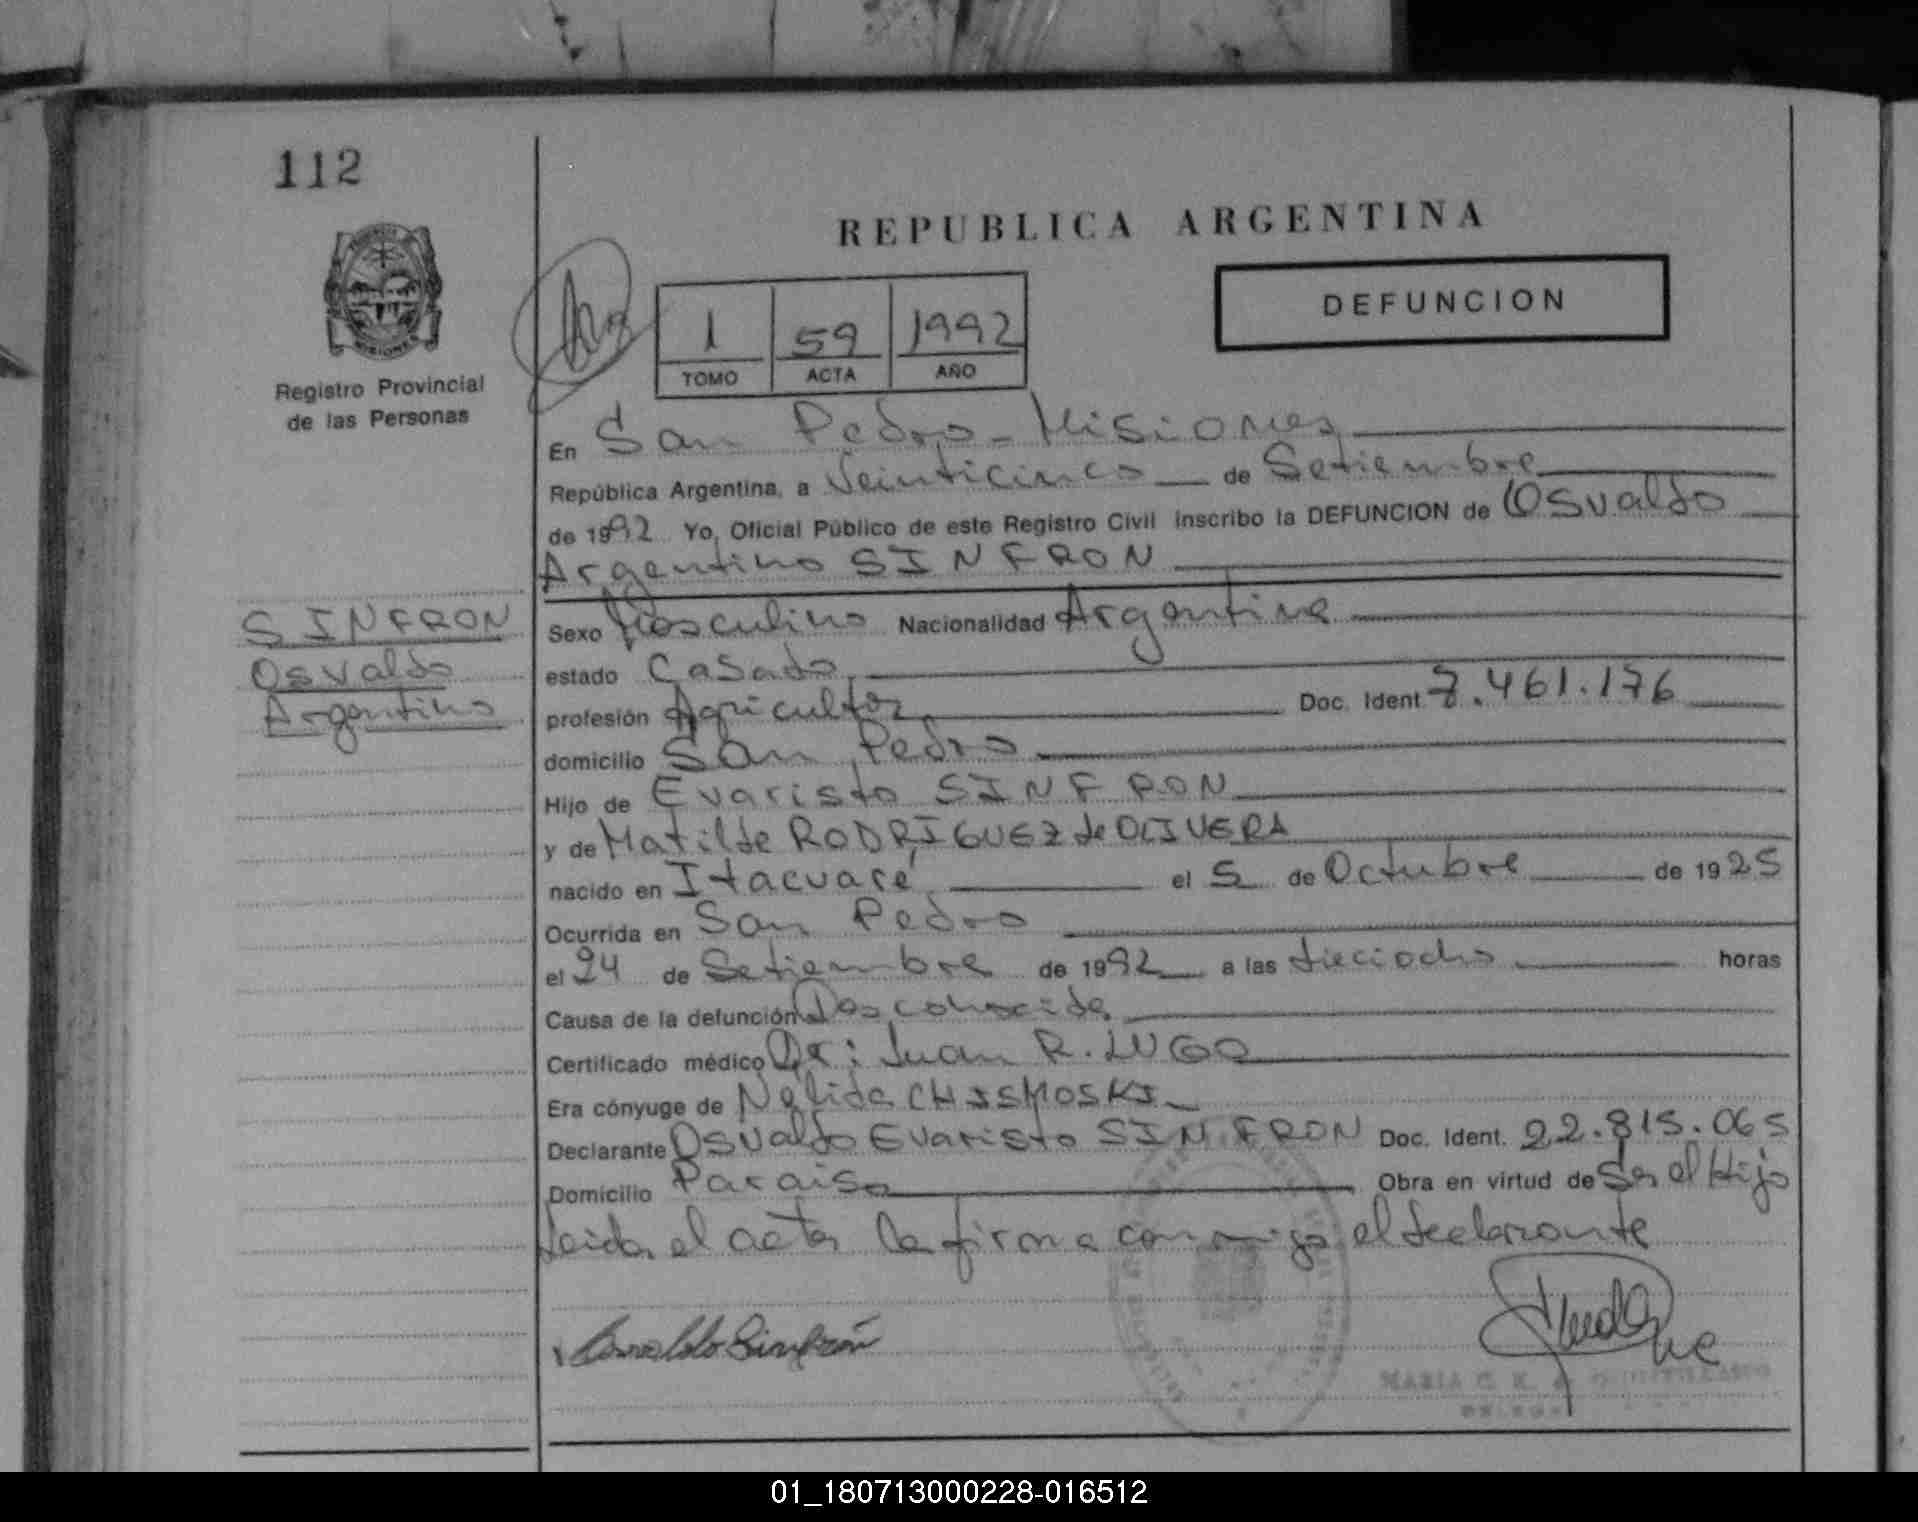 112
REPUBLICA ARGENTINA
DEFUNCION
1 59 1992
TOMO ACTA AÑO
MISIONES
Registro Provincial
de las Personas
En San Pedro - Misiones
República Argentina, a Veinticinco de Setiembre
de 1992 Yo, Oficial Público de este Registro Civil inscribo la DEFUNCION de Osvaldo
Argentino SINFRON
SINFRON
Osvaldo
Argentino
Sexo Masculino Nacionalidad Argentina
estado Casado
profesión Agricultor Doc. Ident. 7.461.176
domicilio San Pedro
Hijo de Evaristo SINFRON
y de Matilde RODRIGUEZ de OLIVERA
nacido en Itacuaré el 5 de Octubre de 1925
Ocurrida en San Pedro
el 24 de Setiembre de 1992 a las dieciocho horas
Causa de la defunción Desconocida
Certificado médico Dr: Juan R. LUGO
Era cónyuge de Nelida CHISMOSKI
Declarante Osvaldo Evaristo SINFRON Doc. Ident. 22.815.065
Domicilio Paraiso Obra en virtud de Ser el Hijo
Leida el acta la firma conmigo el declarante
Osvaldo Sinfrón
MARIA C. K. de
01_180713000228-016512